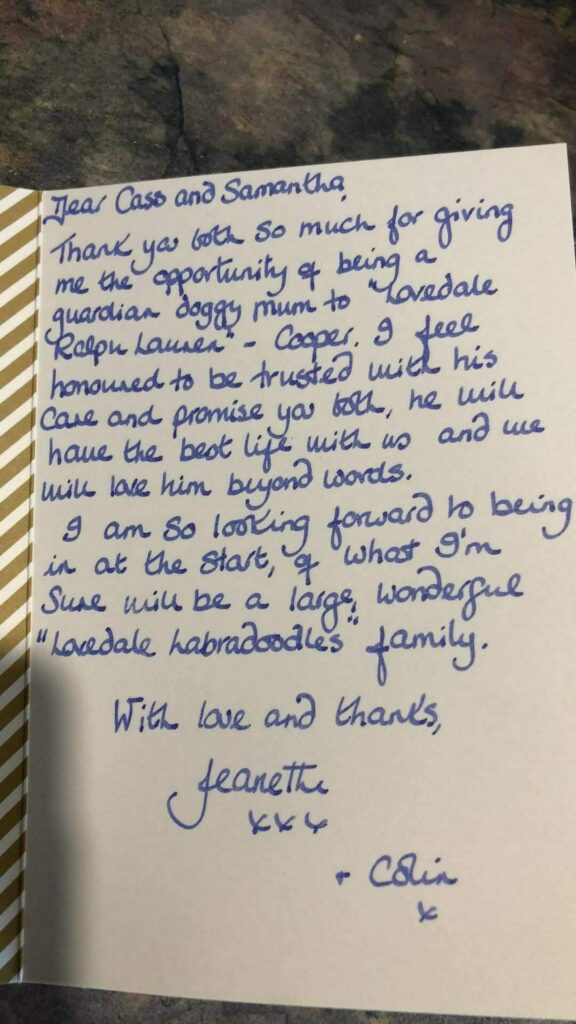 Dear Cass and Samantha,
Thank you both so much for giving
me the opportunity of being a
guardian doggy mum to "Lovedale
Ralph Lauren" - Cooper. I feel
honoured to be trusted with his
care and promise you both, he will
have the best life with us and we
will love him beyond words.
I am so looking forward to being
in at the start, of what I'm
sure will be a large, wonderful
"Lovedale Labradoodles" family.
With love and thanks,
Jeanette
xxx
+ Colin
x